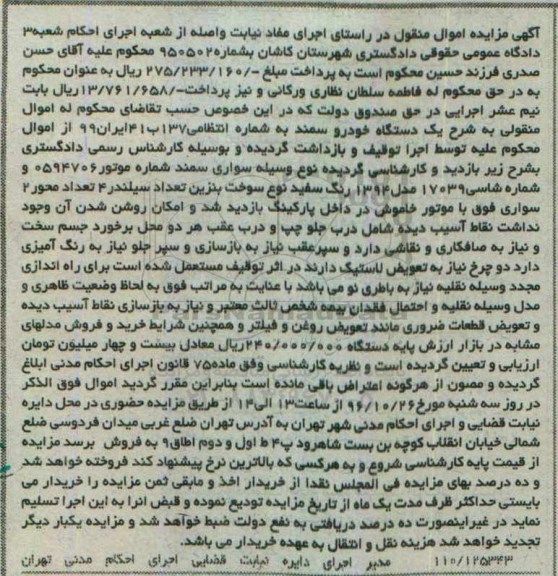 آگهی مزایده اموال منقول در راستای اجرای مفاد نیابت واصله از شعبه اجرای احکام شعبه۳
دادگاه عمومی حقوقی دادگستری شهرستان کاشان بشماره۹۵۰۵۰۲ محکوم علیه آقای حسن
صدری فرزند حسین محکوم است به پرداخت مبلغ -/۲۷۵/۲۳۳/۱۶۰ ریال به عنوان محکوم
به در حق محکوم له فاطمه سلطان نظاری ورکانی و نیز پرداخت-/۱۳/۷۶۱/۶۵۸ریال بابت
نیم عشر اجرایی در حق صندوق دولت که در این خصوص حسب تقاضای محکوم له اموال
منقولی به شرح یک دستگاه خودرو سمند به شماره انتظامی۱۳۷ب۴۱ایران۹۹ از اموال
محکوم علیه توسط اجرا توقیف و بازداشت گردیده و بوسیله کارشناس رسمی دادگستری
بشرح زیر بازدید و کارشناسی گردیده نوع وسیله سواری سمند شماره موتور۰۵۹۴۷۰۶ و
شماره شاسی۱۷۰۳۹ مدل۱۳۹۴ رنگ سفید نوع سوخت بنزین تعداد سیلندر۴ تعداد محور۲
سواری فوق با موتور خاموش در داخل پارکینگ بازدید شد و امکان روشن شدن آن وجود
نداشت نقاط آسیب دیده شامل درب جلو چپ و درب عقب هر دو محل برخورد جسم سخت
و نیاز به صافکاری و نقاشی دارد و سپرعقب نیاز به بازسازی و سپر جلو نیاز به رنگ آمیزی
دارد دو چرخ نیاز به تعویض لاستیک دارند در اثر توقیف مستعمل شده است برای راه اندازی
مجدد وسیله نقلیه نیاز به باطری نو می باشد با عنایت به مراتب فوق به لحاظ وضعیت ظاهری و
مدل وسیله نقلیه و احتمال فقدان بیمه شخص ثالث معتبر و نیاز به بازسازی نقاط آسیب دیده
و تعویض قطعات ضروری مانند تعویض روغن و فیلتر و همچنین شرایط خرید و فروش مدلهای
مشابه در بازار ارزش پایه دستگاه ۲۴۰/۰۰۰/۰۰۰ریال معادل بیست و چهار میلیون تومان
ارزیابی و تعیین گردیده است و نظریه کارشناسی وفق ماده۷۵ قانون اجرای احکام مدنی ابلاغ
گردیده و مصون از هرگونه اعتراض باقی مانده است بنابراین مقرر گردید اموال فوق الذکر
در روز سه شنبه مورخ۹۶/۱۰/۲۶ از ساعت۱۳ الی۱۴ از طریق مزایده حضوری در محل دایره
نیابت قضایی و اجرای احکام مدنی شهر تهران به آدرس تهران ضلع غربی میدان فردوسی ضلع
شمالی خیابان انقلاب کوچه بن بست شاهرود پ۴ ط اول و دوم اطاق۹ به فروش برسد مزایده
از قیمت پایه کارشناسی شروع و به هرکسی که بالاترین نرخ پیشنهاد کند فروخته خواهد شد
و ده درصد بهای مزایده فی المجلس نقدا از خریدار اخذ و مابقی ثمن مزایده را خریدار می
بایستی حداکثر ظرف مدت یک ماه از تاریخ مزایده تودیع نموده و قبض انرا به این اجرا تسلیم
نماید در غیراینصورت ده درصد دریافتی به نفع دولت ضبط خواهد شد و مزایده یکبار دیگر
تجدید خواهد شد هزینه نقل و انتقال به عهده خریدار می باشد.
۱۱۰/۱۲۵۳۴۳ مدیر اجرای دایره نیابت قضایی اجرای احکام مدنی تهران